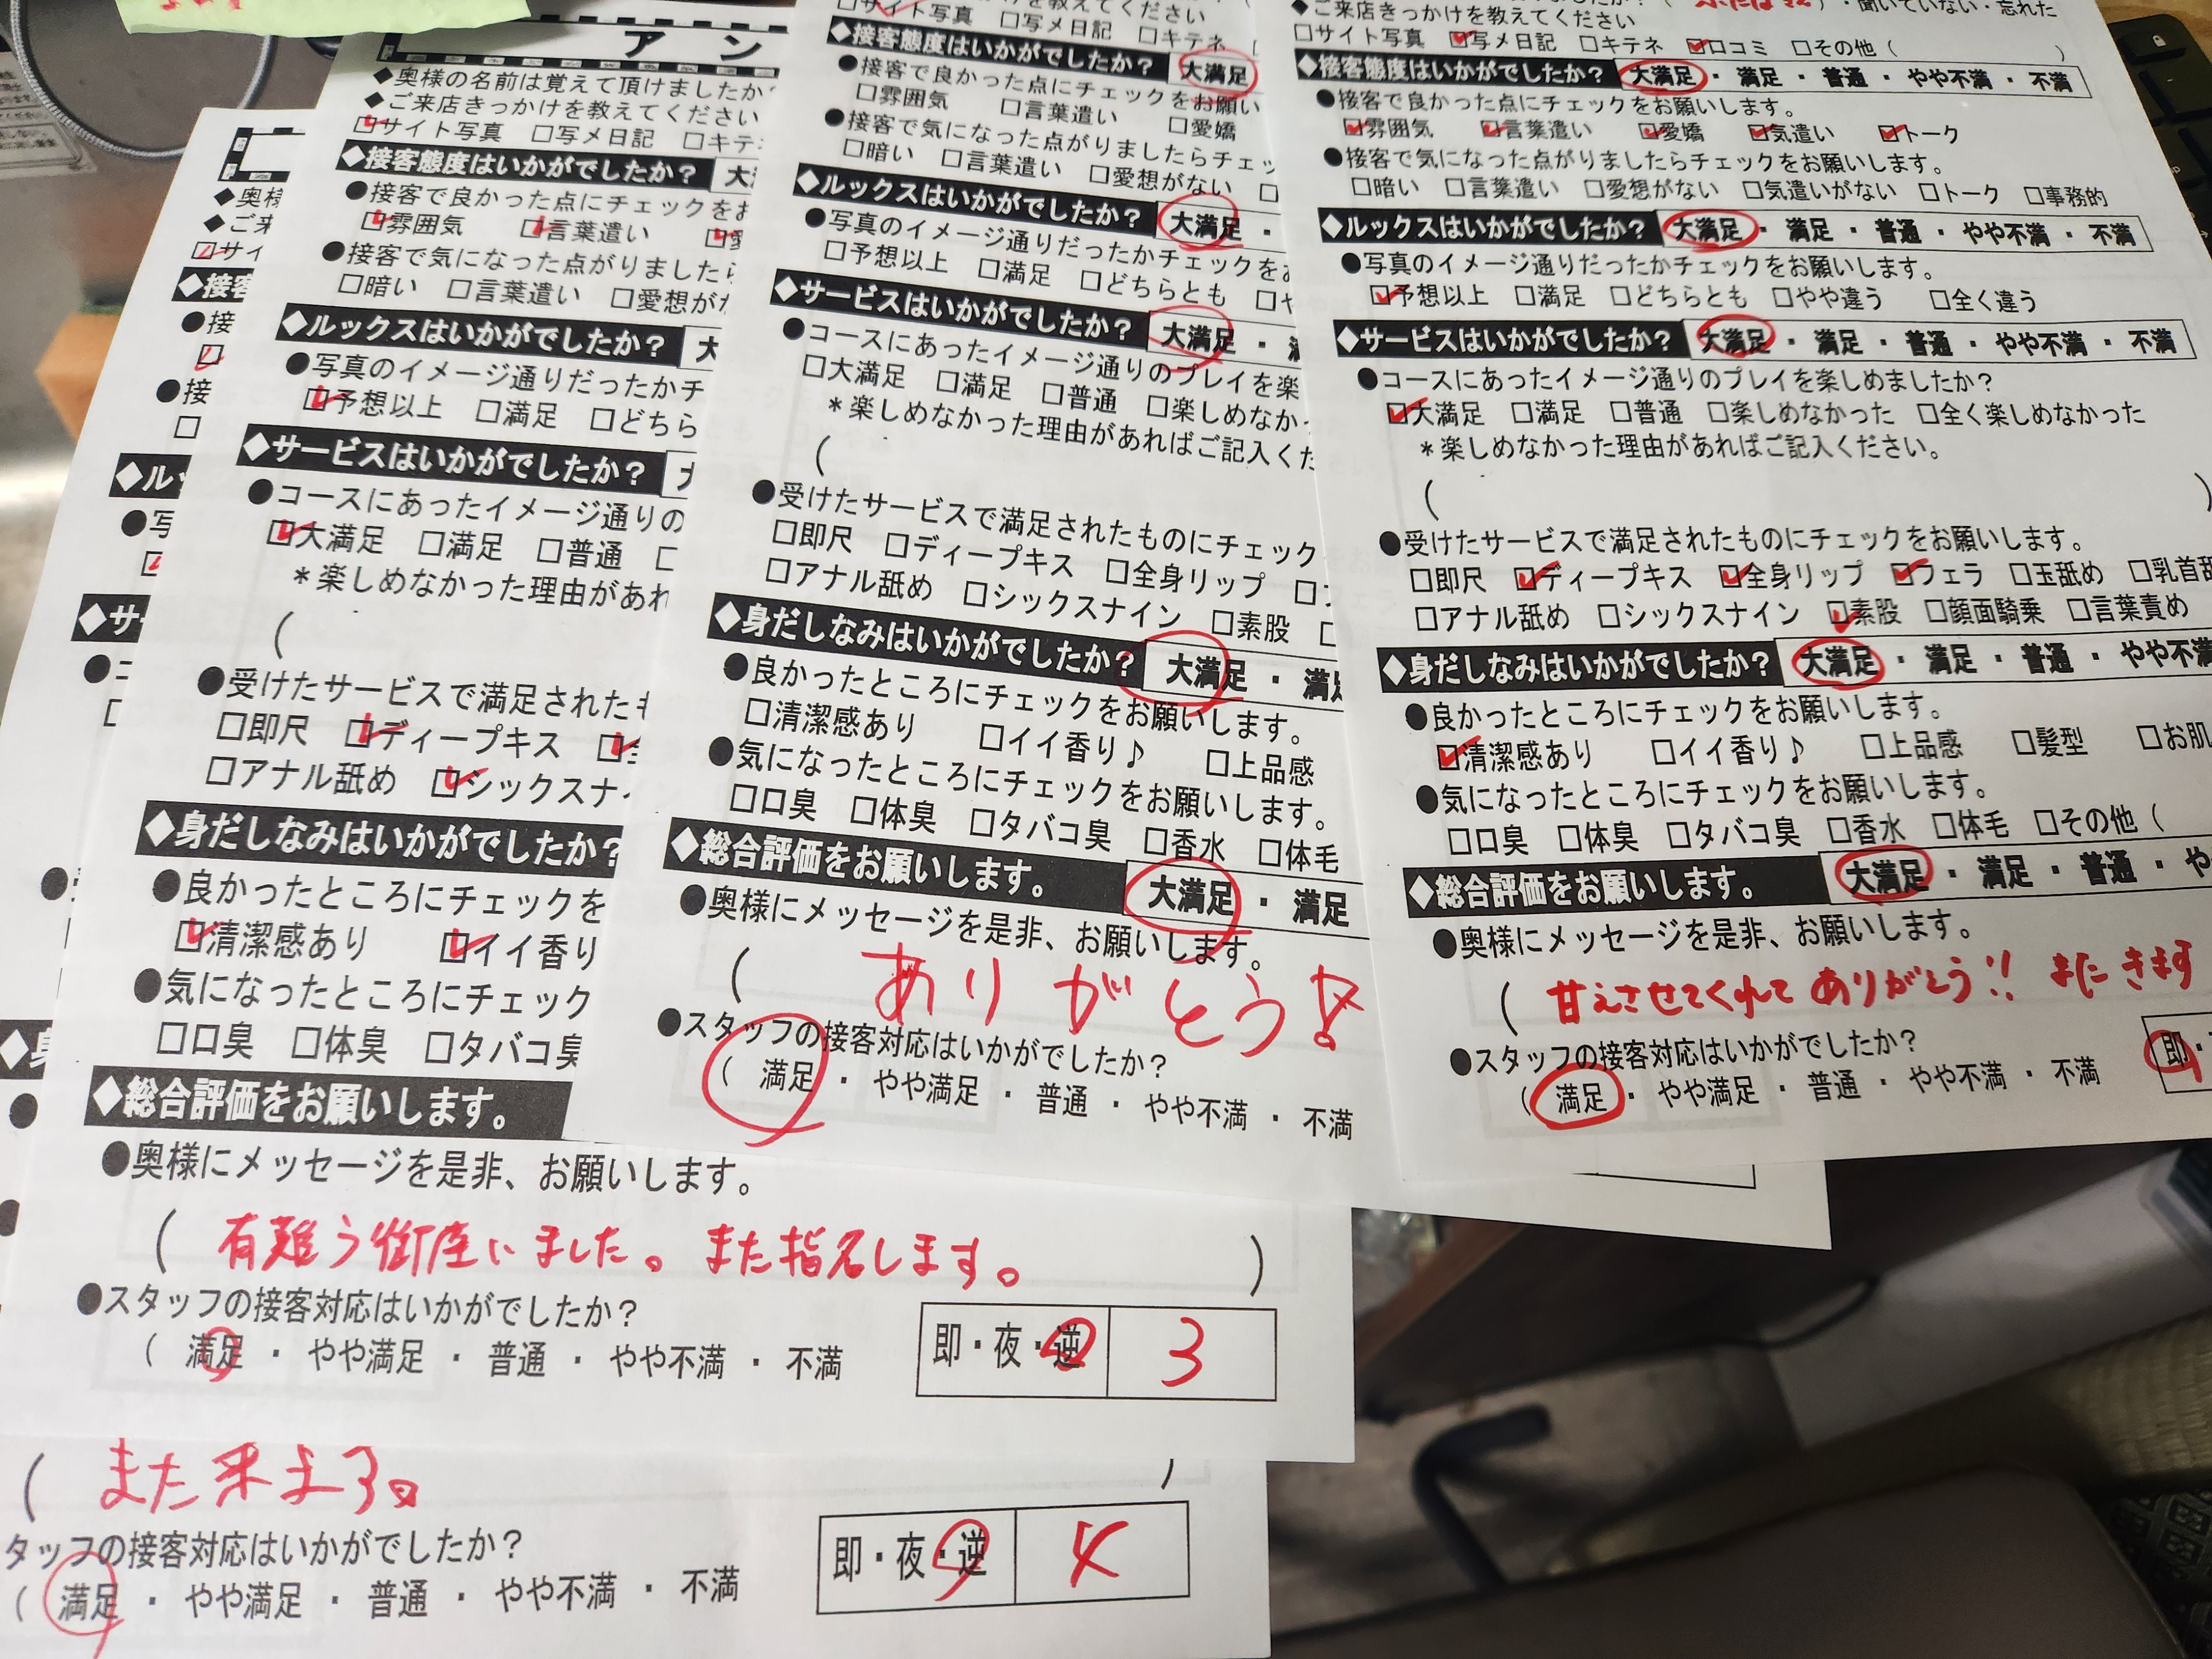 アン
◆奥様の名前は覚えて頂けましたか
◆ご来店きっかけを教えてください
□サイト写真 □写メ日記 □キテネ
◆接客態度はいかがでしたか？
●接客で良かった点にチェックをお
□雰囲気 □言葉遣い
●接客で気になった点がりましたら
□暗い □言葉遣い □愛想が
◆ルックスはいかがでしたか？
●写真のイメージ通りだったかチ
□予想以上 □満足 □どちら
◆サービスはいかがでしたか？
●コースにあったイメージ通りの
□大満足 □満足 □普通
＊楽しめなかった理由があれ
(
●受けたサービスで満足された
□即尺 □ディープキス
□アナル舐め □シックスナイ
◆身だしなみはいかがでしたか？
●良かったところにチェックを
□清潔感あり □イイ香り
●気になったところにチェック
□口臭 □体臭 □タバコ臭
◆総合評価をお願いします。
●奥様にメッセージを是非、お願いします。
( 有難う御座いました。また指名します。 )
●スタッフの接客対応はいかがでしたか？
( 満足 ・ やや満足 ・ 普通 ・ やや不満 ・ 不満
即・夜・逆 3
教えてください
□サイト写真 □写メ日記 □キテネ (
◆接客態度はいかがでしたか？ 大満足
●接客で良かった点にチェックをお願い
□雰囲気 □言葉遣い □愛嬌
●接客で気になった点がりましたらチェッ
□暗い □言葉遣い □愛想がない
◆ルックスはいかがでしたか？ 大満足 ・
●写真のイメージ通りだったかチェックを
□予想以上 □満足 □どちらとも
◆サービスはいかがでしたか？ 大満足 ・
●コースにあったイメージ通りのプレイを楽
□大満足 □満足 □普通 □楽しめなか
＊楽しめなかった理由があればご記入くだ
(
●受けたサービスで満足されたものにチェック
□即尺 □ディープキス □全身リップ
□アナル舐め □シックスナイン □素股
◆身だしなみはいかがでしたか？ 大満足 ・ 満
●良かったところにチェックをお願いします。
□清潔感あり □イイ香り♪ □上品感
●気になったところにチェックをお願いします。
□口臭 □体臭 □タバコ臭 □香水 □体毛
◆総合評価をお願いします。 大満足 ・ 満足
●奥様にメッセージを是非、お願いします。
( ありがとう!
●スタッフの接客対応はいかがでしたか？
( 満足 ・ やや満足 ・ 普通 ・ やや不満 ・ 不満
・聞いていない・忘れた
◆ご来店きっかけを教えてください
□サイト写真 □写メ日記 □キテネ □口コミ □その他 ( )
◆接客態度はいかがでしたか？ 大満足 ・ 満足 ・ 普通 ・ やや不満 ・ 不満
●接客で良かった点にチェックをお願いします。
□雰囲気 □言葉遣い □愛嬌 □気遣い □トーク
●接客で気になった点がりましたらチェックをお願いします。
□暗い □言葉遣い □愛想がない □気遣いがない □トーク □事務的
◆ルックスはいかがでしたか？ 大満足 ・ 満足 ・ 普通 ・ やや不満 ・ 不満
●写真のイメージ通りだったかチェックをお願いします。
□予想以上 □満足 □どちらとも □やや違う □全く違う
◆サービスはいかがでしたか？ 大満足 ・ 満足 ・ 普通 ・ やや不満 ・ 不満
●コースにあったイメージ通りのプレイを楽しめましたか？
□大満足 □満足 □普通 □楽しめなかった □全く楽しめなかった
＊楽しめなかった理由があればご記入ください。
( )
●受けたサービスで満足されたものにチェックをお願いします。
□即尺 □ディープキス □全身リップ □フェラ □玉舐め □乳首
□アナル舐め □シックスナイン □素股 □顔面騎乗 □言葉責め
◆身だしなみはいかがでしたか？ 大満足 ・ 満足 ・ 普通 ・ やや不満
●良かったところにチェックをお願いします。
□清潔感あり □イイ香り♪ □上品感 □髪型 □お肌
●気になったところにチェックをお願いします。
□口臭 □体臭 □タバコ臭 □香水 □体毛 □その他 (
◆総合評価をお願いします。 大満足 ・ 満足 ・ 普通 ・ や
●奥様にメッセージを是非、お願いします。
( 甘えさせてくれてありがとう!! またきます
●スタッフの接客対応はいかがでしたか？
( 満足 ・ やや満足 ・ 普通 ・ やや不満 ・ 不満
即・
◆奥様
◆ご来
□サイ
◆接客
●接
●接
◆ルッ
●写
◆サー
●コ
( また来まよる。 )
タッフの接客対応はいかがでしたか？
( 満足 ・ やや満足 ・ 普通 ・ やや不満 ・ 不満
即・夜・逆 4